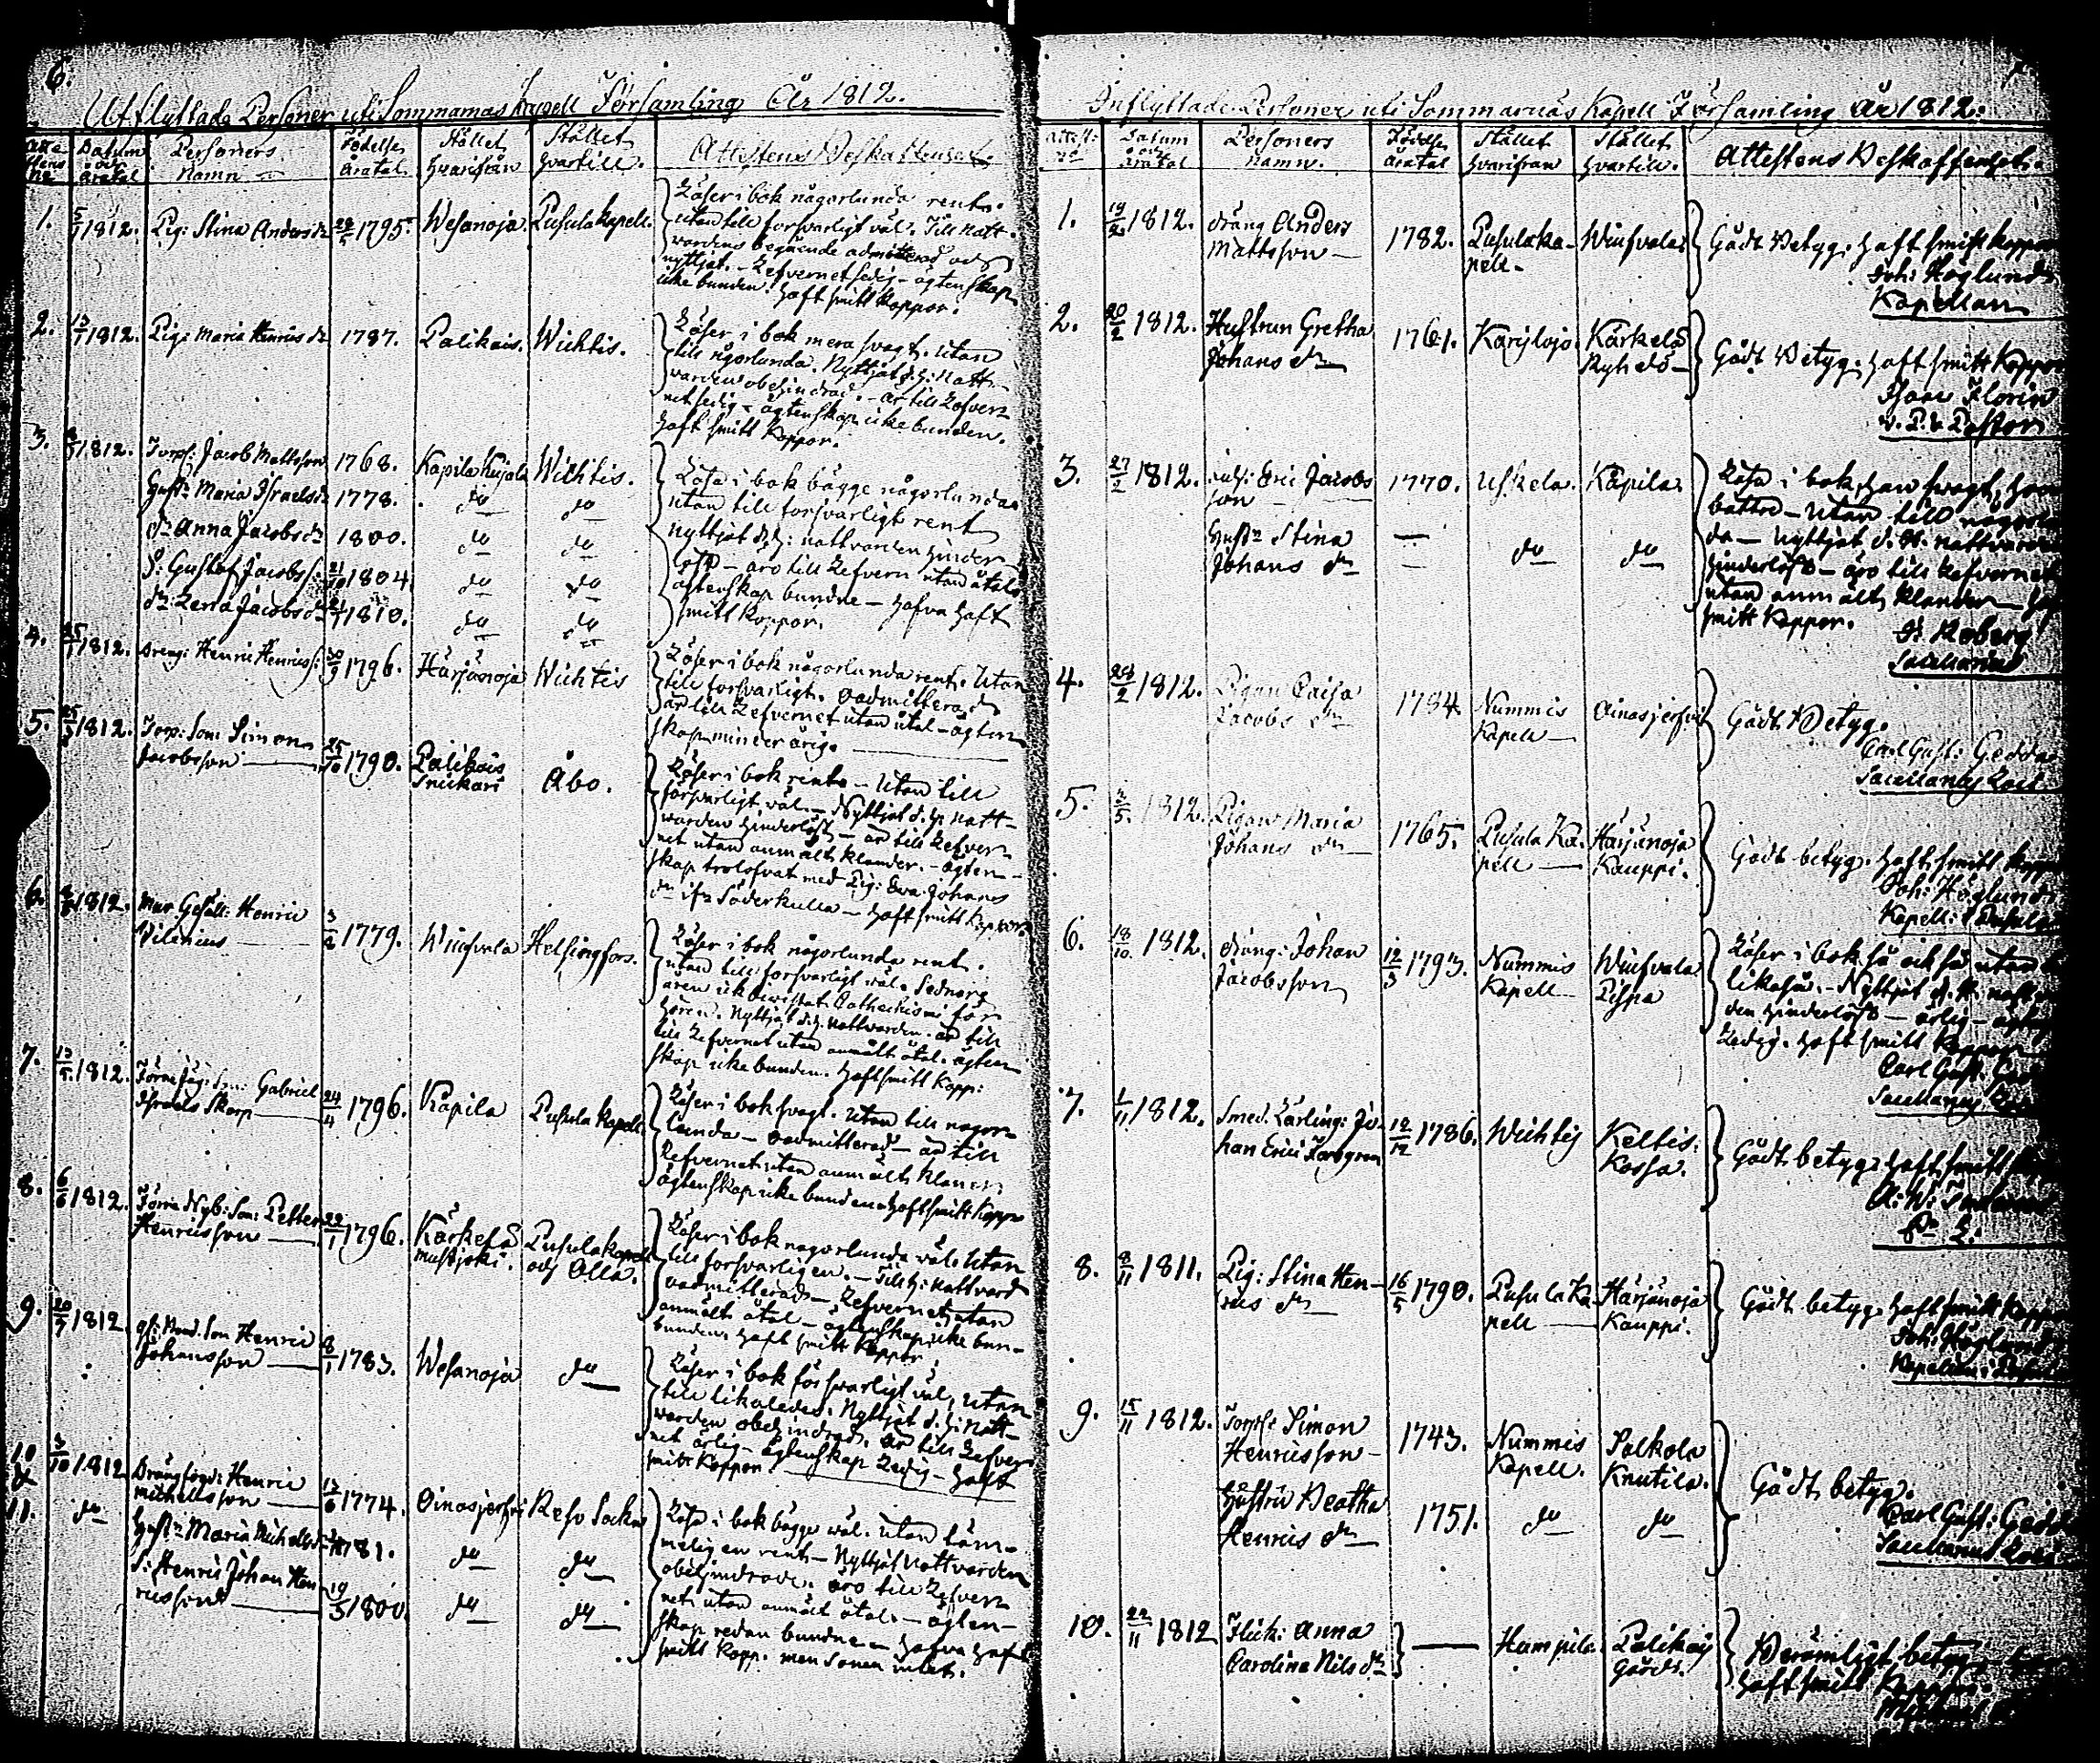 6.
Utflyttade Personer uti Sommarnäs Kapell Församling År 1812.
Attestens No
Datum och Åratal
Personers Namn
Födelse Åratal
Stället hvarifrån
Stället hvartill.
Attestens Beskaffenhet.
1. 5/1 1812. Pig: Stina Anders dr 1795. Wesanoja Pusula kapell.
Läser i bok någorlunda rent.
utan till forsvarligt väl. Till Natt-
vardens begående admitterad och
nyttjat. Lefvernet sedig - ägtenskap
icke bunden. haft smitt koppor.
2. 1812. Pig: Maria Henrics dr 1787. Palikais. Wichtis.
Läser i bok mera svagt. Utan
till någorlunda. Nyttjat d. h: Natt-
varden obehindrad. - är till Lefver-
net sedig - ägtenskap icke bunden.
haft smitt koppor.
3. 1812. Torp: Jacob Mattsson 1768. Kapila Kujala Wichtis.
Hustr Maria Israels dr 1778. do do
dr Anna Jacobs dr 1800. do do
S. Gustaf Jacobs s: 1804 do do
dr: Lena Jacobs dr 1810. do do
Läsa i bok bägge någorlunda
utan till forsvarligt rent
nyttjat d. h: nattvarden hinder
löst - äro till Lefvern utan åtal
ägtenskap bundne - hafva haft
smitt koppor.
4. 25/1 1812. Dreng: Henric Henrics s: 1796. Härjänoja Wichtis
Läser i bok någorlunda rent. Utan
till forsvarligt. Oadmitterad
är till Lefvernet utan åtal - ägten
skap minderårig.
5. 1812. Torp: Son: Simon
Jacobsson 25/10 1790. Palikais Snickari Åbo.
Läser i bok rent - Utan till
forsvarligt väl. - Nyttjat d. h: natt-
varden hinderlöst - är till Lefver-
net utan anmält klander. - ägten-
skap trolofvat med Pig: Ewa Johans
dr ifr Söderkulla - haft smitt koppor.
6. 1812. Mur. Gesäll: Henric
Vilenius 3/2 1779. Wiuhvala Helsingfors.
Läser i bok någorlunda rent.
utan till forsvarligt väl. Sednare
åren ick bewistat Cathechismi för
hören. Nyttjat d. h. nattvarden. är till
till Lefvernet utan anmält åtal. ägten
skap icke bunden. haft smitt kopp:
7. 1812. Förre Jäg: Son: Gabriel
Israels Skarp 24/4 1796. Kåpila Pusula Kapell
Läser i bok svagt. Utan till någor-
lunda - Oadmitterad - är till
Lefvernet utan anmält klander
ägtenskap icke bunden haft smitt kopp
8. 6/6 1812. Förra Nyb: Son: Petter
Henricsson 22/1 1796. Kärkelä mustjoki. Pusula kapell och Olla.
Läser i bok någorlunda väl. Utan
till forsvarligen. - Till h: nattvard
oadmitterad - Lefvernet utan
anmält åtal - ägtenskap icke bun-
den. haft smitt koppor.
9. 20/7 1812 Bond. Son Henric
Johansson 8/1 1783. Wesanoja do
Läser i bok forsvarligt väl, utan
till likaledes. Nyttjat d. h: natt-
varden obehindrad. är till Lefver
net ärlig - ägtenskap Ledig - haft
smitt koppor.
10 & 11. 3/10 1812 Drängfogd: Henric
Michelsson 1774. Oinasjerfvi Reso Sockn
do Hustr Maria Michels dr 1781. do do
S. Henric Johan Hen
ricsson 19/5 1800 do do
Läsa i bok bägge väl. Utan täm-
meligen rent - Nyttjat Nattvarden
obehindrade. äro till Lefver-
net utan anmält åtal - ägten-
skap redan bundne - hafva haft
smitt kopp. men sonen intet.
Inflyttade Personer uti Sommarnäs Kapell Församling År 1812.
Attest: No
Datum och Åratal
Personers namn.
Födelse åratal
Stället hvarifrån
Stället hvartill.
Attestens Beskaffenhet.
1. 19/2 1812. dräng Anders
Mattsson 1782. Pusula ka-
pell. Wiuhvala
Godt Betyg. haft smitt koppor
Joh: Höglund
Kapellan
2. 20/2 1812. Hustrun Gretha
Johans dr 1761. Karjlojo. Kärkelä Ryhdö
Godt Betyg. haft smitt Koppor
Isaac Florin
v. P. & Pastor
3. 27/2 1812. Eric Jacobs
son 1770. Uskela. Kåpila
Hustr Stina
Johans dr — do do
Läsa i bok, han svagt, hon
bättre - Utan till någorlun
da - Nyttjat d. H. nattvarden
hinderlöst - äro till Lefvernet
utan anmält klander - haft
smitt koppor.
Moberg
Sacellanus
4. 28/2 1812. Pigan Caisa
Jacobs dr 1784. Nummis
Kapell Oinasjerfvi
Godt Betyg.
Carl Gust: Gedda
Sacellanus Loci
5. 3/5 1812. Pigan Maria
Johans dr 1765. Pusula Ka-
pell Härjänoja
Kauppi.
Godt betyg. haft smitt koppor
Joh: Höglund
Kapell: i Pusula
6. 18/10 1812. dräng: Johan
Jacobsson 12/3 1793. Nummis
Kapell Wiuhvala
Pispa
Läser i bok så och så utan
likaså. - Nyttjat d. H. natt
den hinderlöst - ärlig - ägt
Ledig. haft smitt koppor
Carl Gust.
Sacellanus
7. 1/11 1812. Smed. Lärling: Jo-
han Eric 12/12 1786. Wichtis Keltis:
Kossa.
Godt betyg. haft smitt
8. 8/11 1811. Pig: Stina Hen-
rics dr 16/5 1790. Pusula Ka-
pell Härjänoja
Kauppi.
Godt betyg. haft smitt kopp
Joh: Höglund
Kapellan i Pusula
9. 15/11 1812. Torp: Simon
Henricsson 1743. Nummis
Kapell. Salkola
Knutila.
Hustru Beatha
Henrics dr 1751. do do
Godt betyg.
Carl Gust: Gedda
Sacellanus Loci
10. 22/11 1812 Flick: Anna
Carolina Nils dr — Hampila. Palikais
Gård.
Berömligt betyg
haft smitt koppor.